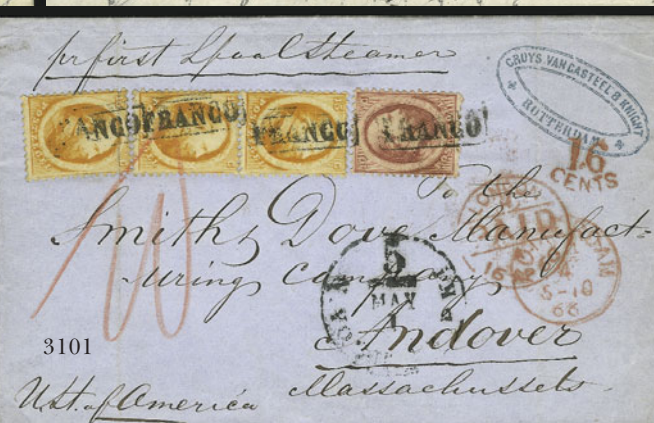 pr first Lpool Steamer
CRUYS, VAN CASTEEL & KNIGHT
ROTTERDAM
FRANCO
FRANCO
FRANCO
FRANCO
16
CENTS
To the
Smith, Dove Manufact-
uring Company
PAID
5
MAY
5-10
66
10
Andover
3101
Massachussets
Ust. of America